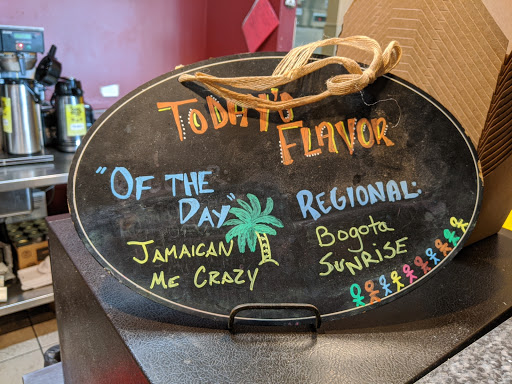 TODAY'S
FLAVOR
"OF THE
DAY"
JAMAICAN
ME CRAZY
REGIONAL:
Bogota
SUNRISE